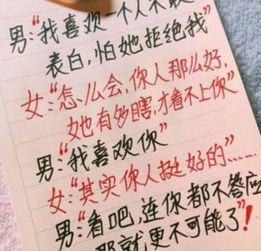 男:“我喜欢一个人不敢
表白,怕她拒绝我”
女:“怎么会,你人那么好,
她有多瞎,才看不上你”
男:“我喜欢你”
女:“其实你人挺好的……
男:“看吧,连你都不答应
那就更不可能了”!